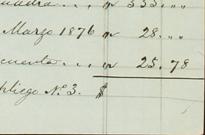 uadra . . . , „ 333. „
Marzo 1876 „ 28. „
cuenta . . . , „ 25. 78
pliego Nº 3. $